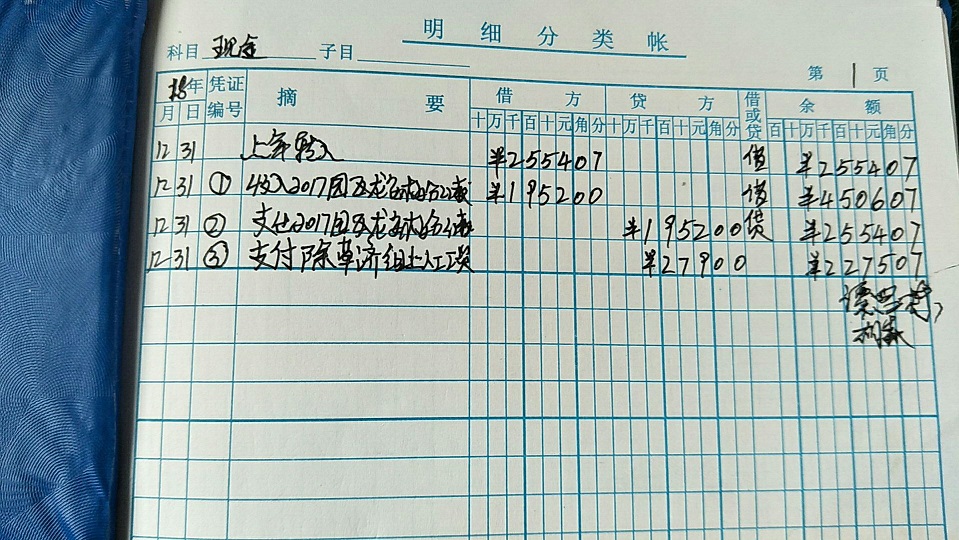 明细分类帐
科目 现金 子目
第 1 页
年 凭证 摘要 借方 贷方 借或贷 余额
月 日 编号 十万千百十元角分 十万千百十元角分 百十万千百十元角分
12 31 上年转入 ¥255407 借 ¥255407
12 31 ① 收入2017 ¥195200 借 ¥450607
12 31 ② 支付2017 ¥195200 贷 ¥255407
12 31 ③ 支付除草济组上人工费 ¥27900 ¥227507